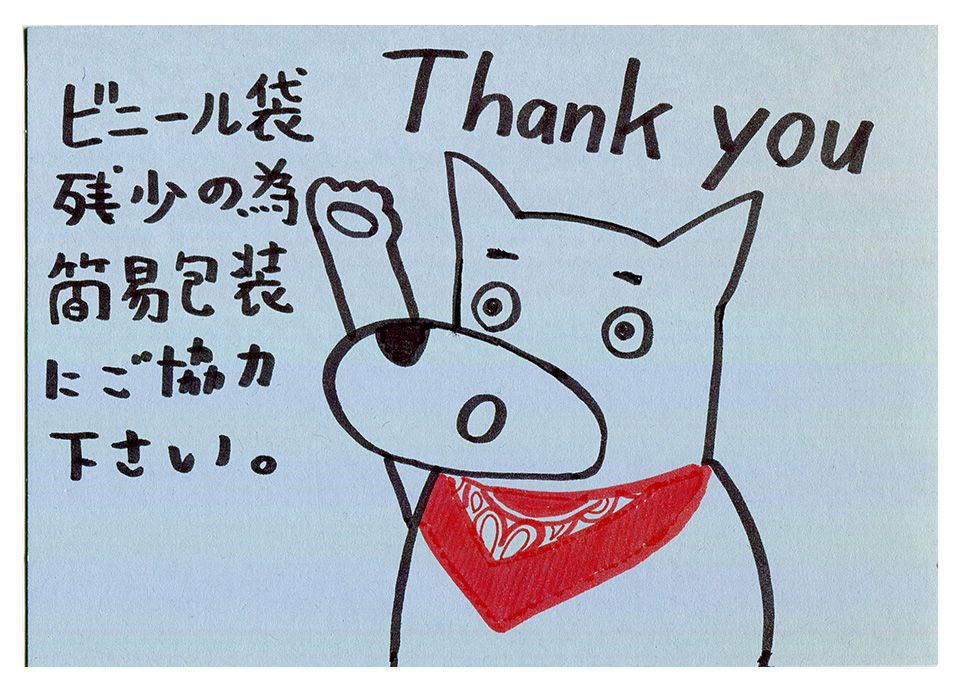 Thank you
ビニール袋
残少の為
簡易包装
にご協力
下さい。